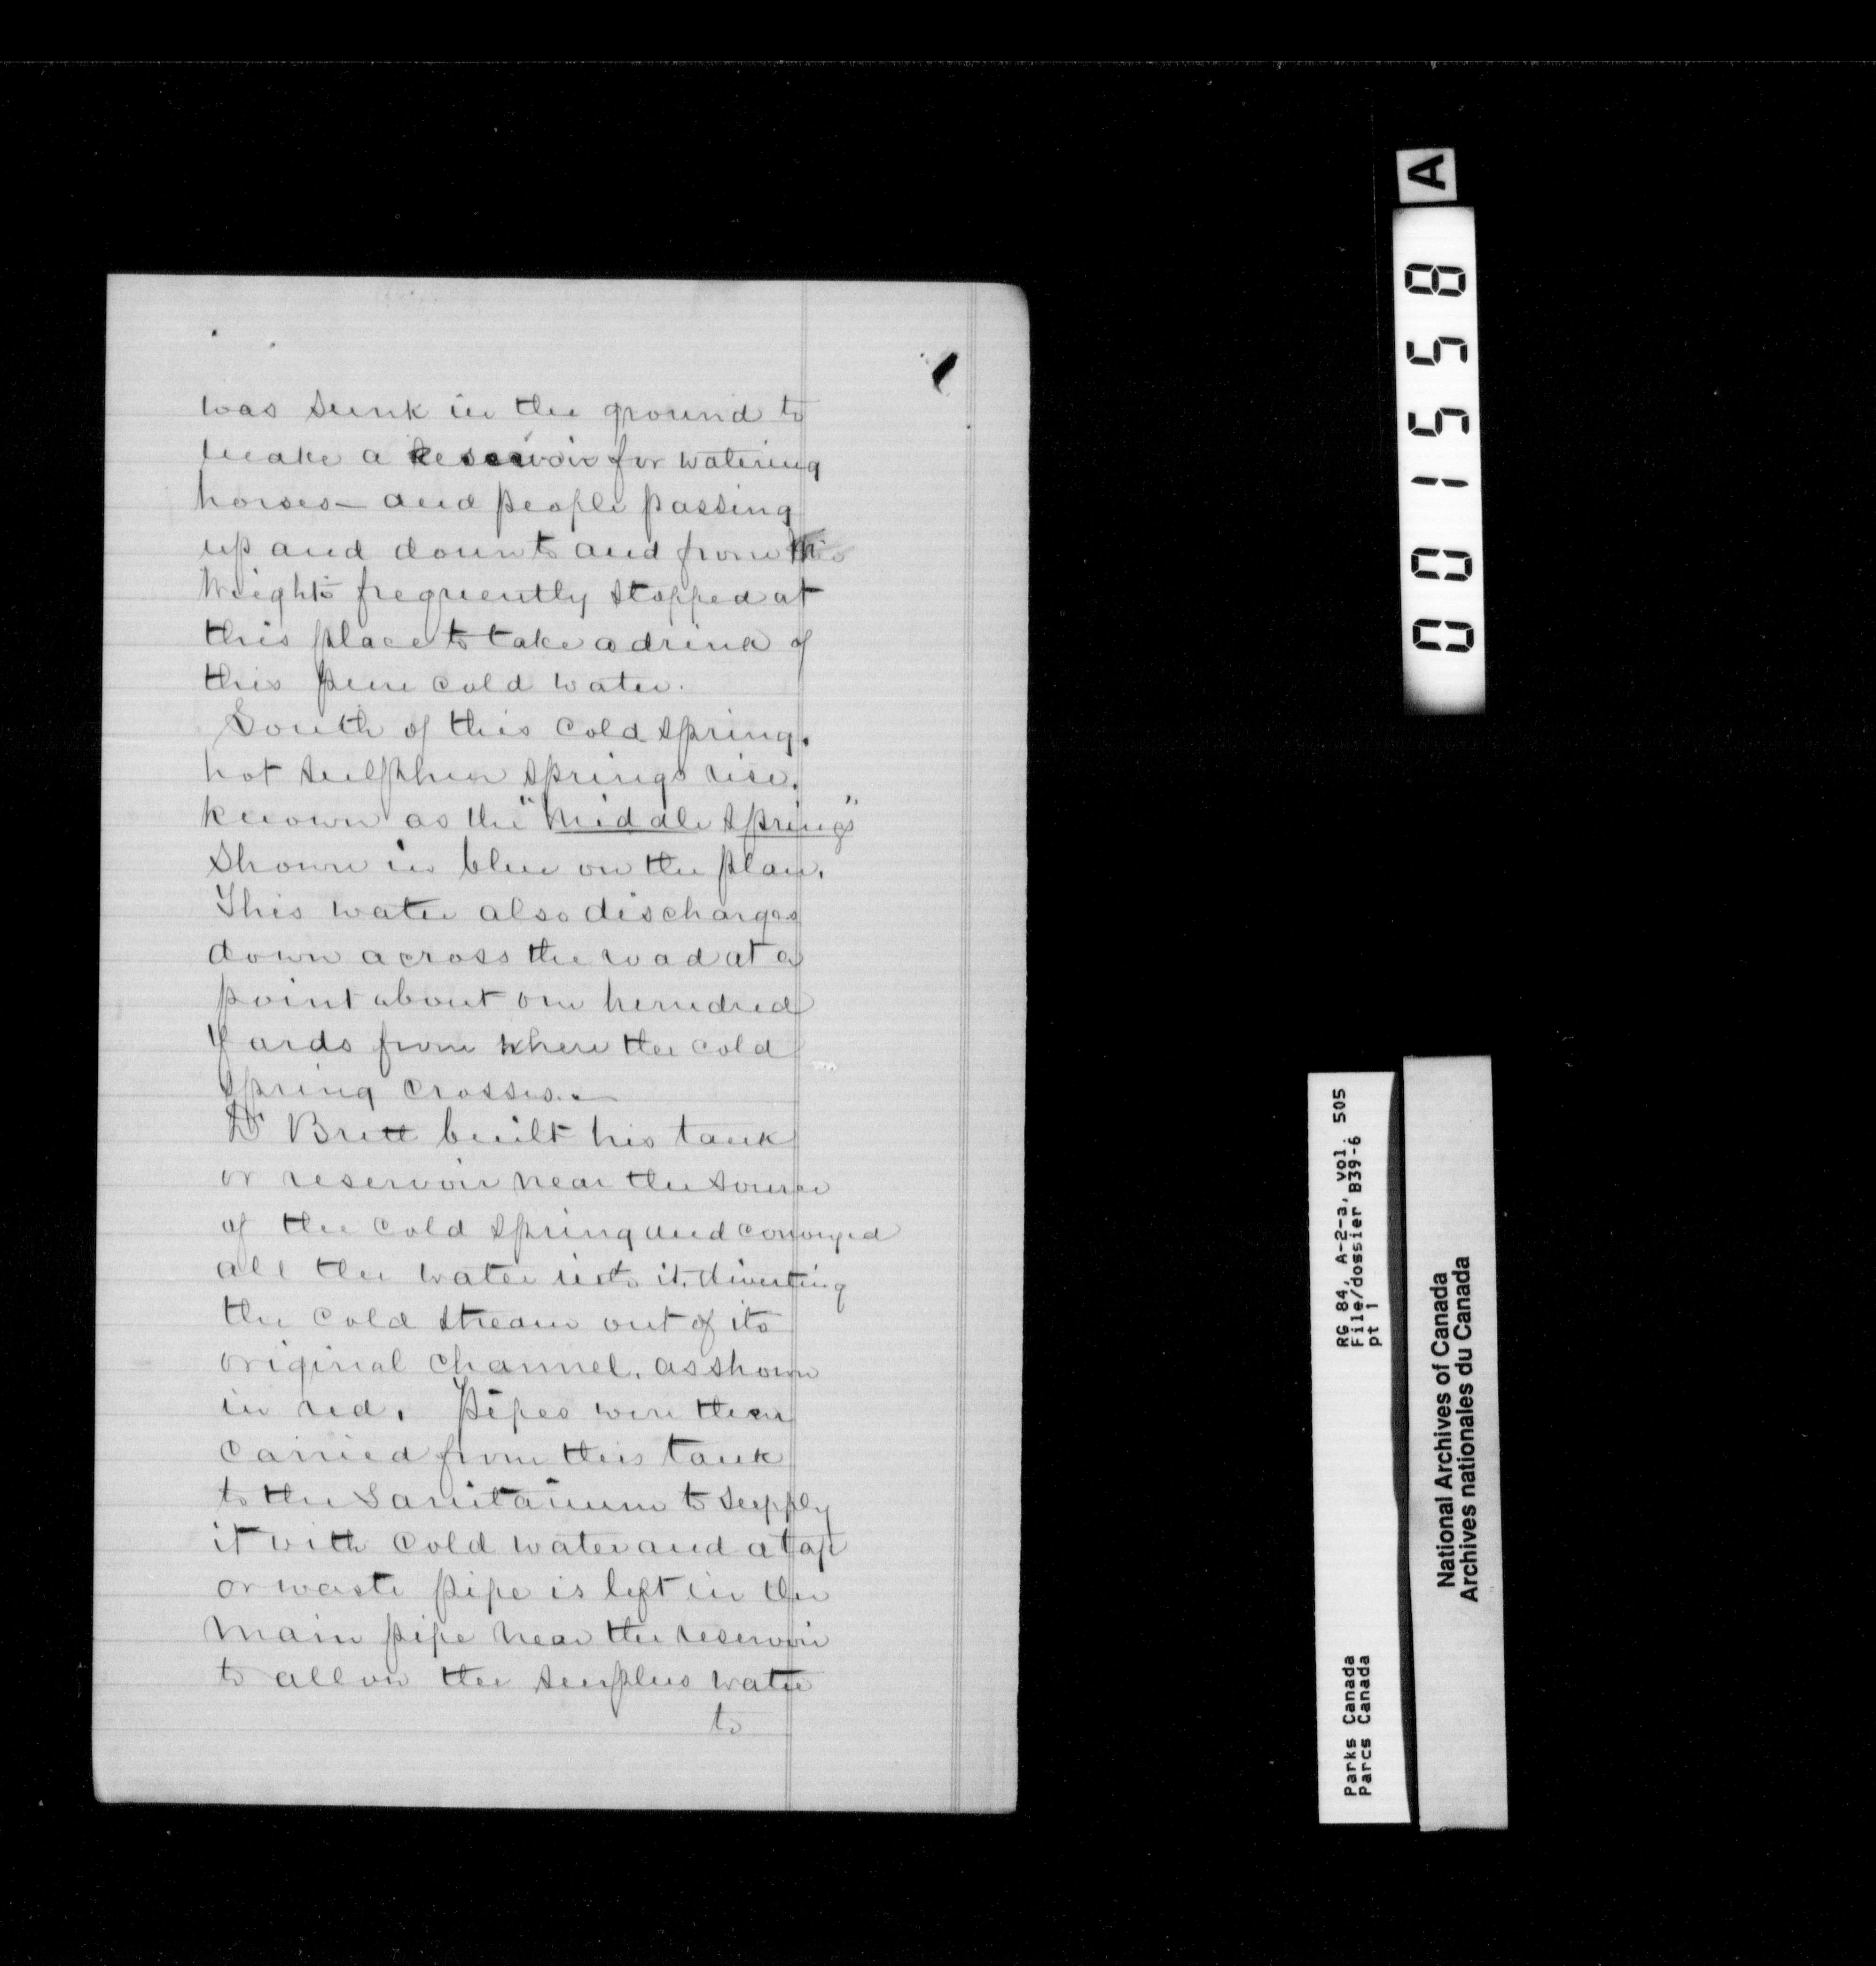 was sunk in the ground to
make a reservoir for watering
horses — and people passing
up and down to and from this
height frequently stopped at
this place to take a drink of
this pure cold water.
South of this cold spring.
hot sulphur springs rise.
known as the "Middle Springs"
shown in blue on the plan.
This water also discharges
down across the road at a
point about one hundred
yards from where the cold
spring crosses. —
Dr Brett built his tank
or reservoir near the source
of the cold spring and conveyed
all the water into it, diverting
the cold stream out of its
original channel. as shown
in red. Pipes were then
carried from this tank
to the Sanitarium to supply
it with cold water and a tap
or waste pipe is left in the
main pipe near the reservoir
to allow the surplus water
to
A
001558
RG 84, A-2-a, vol. 505
File/dossier B39-6
pt 1
Parks Canada
Parcs Canada
National Archives of Canada
Archives nationales du Canada